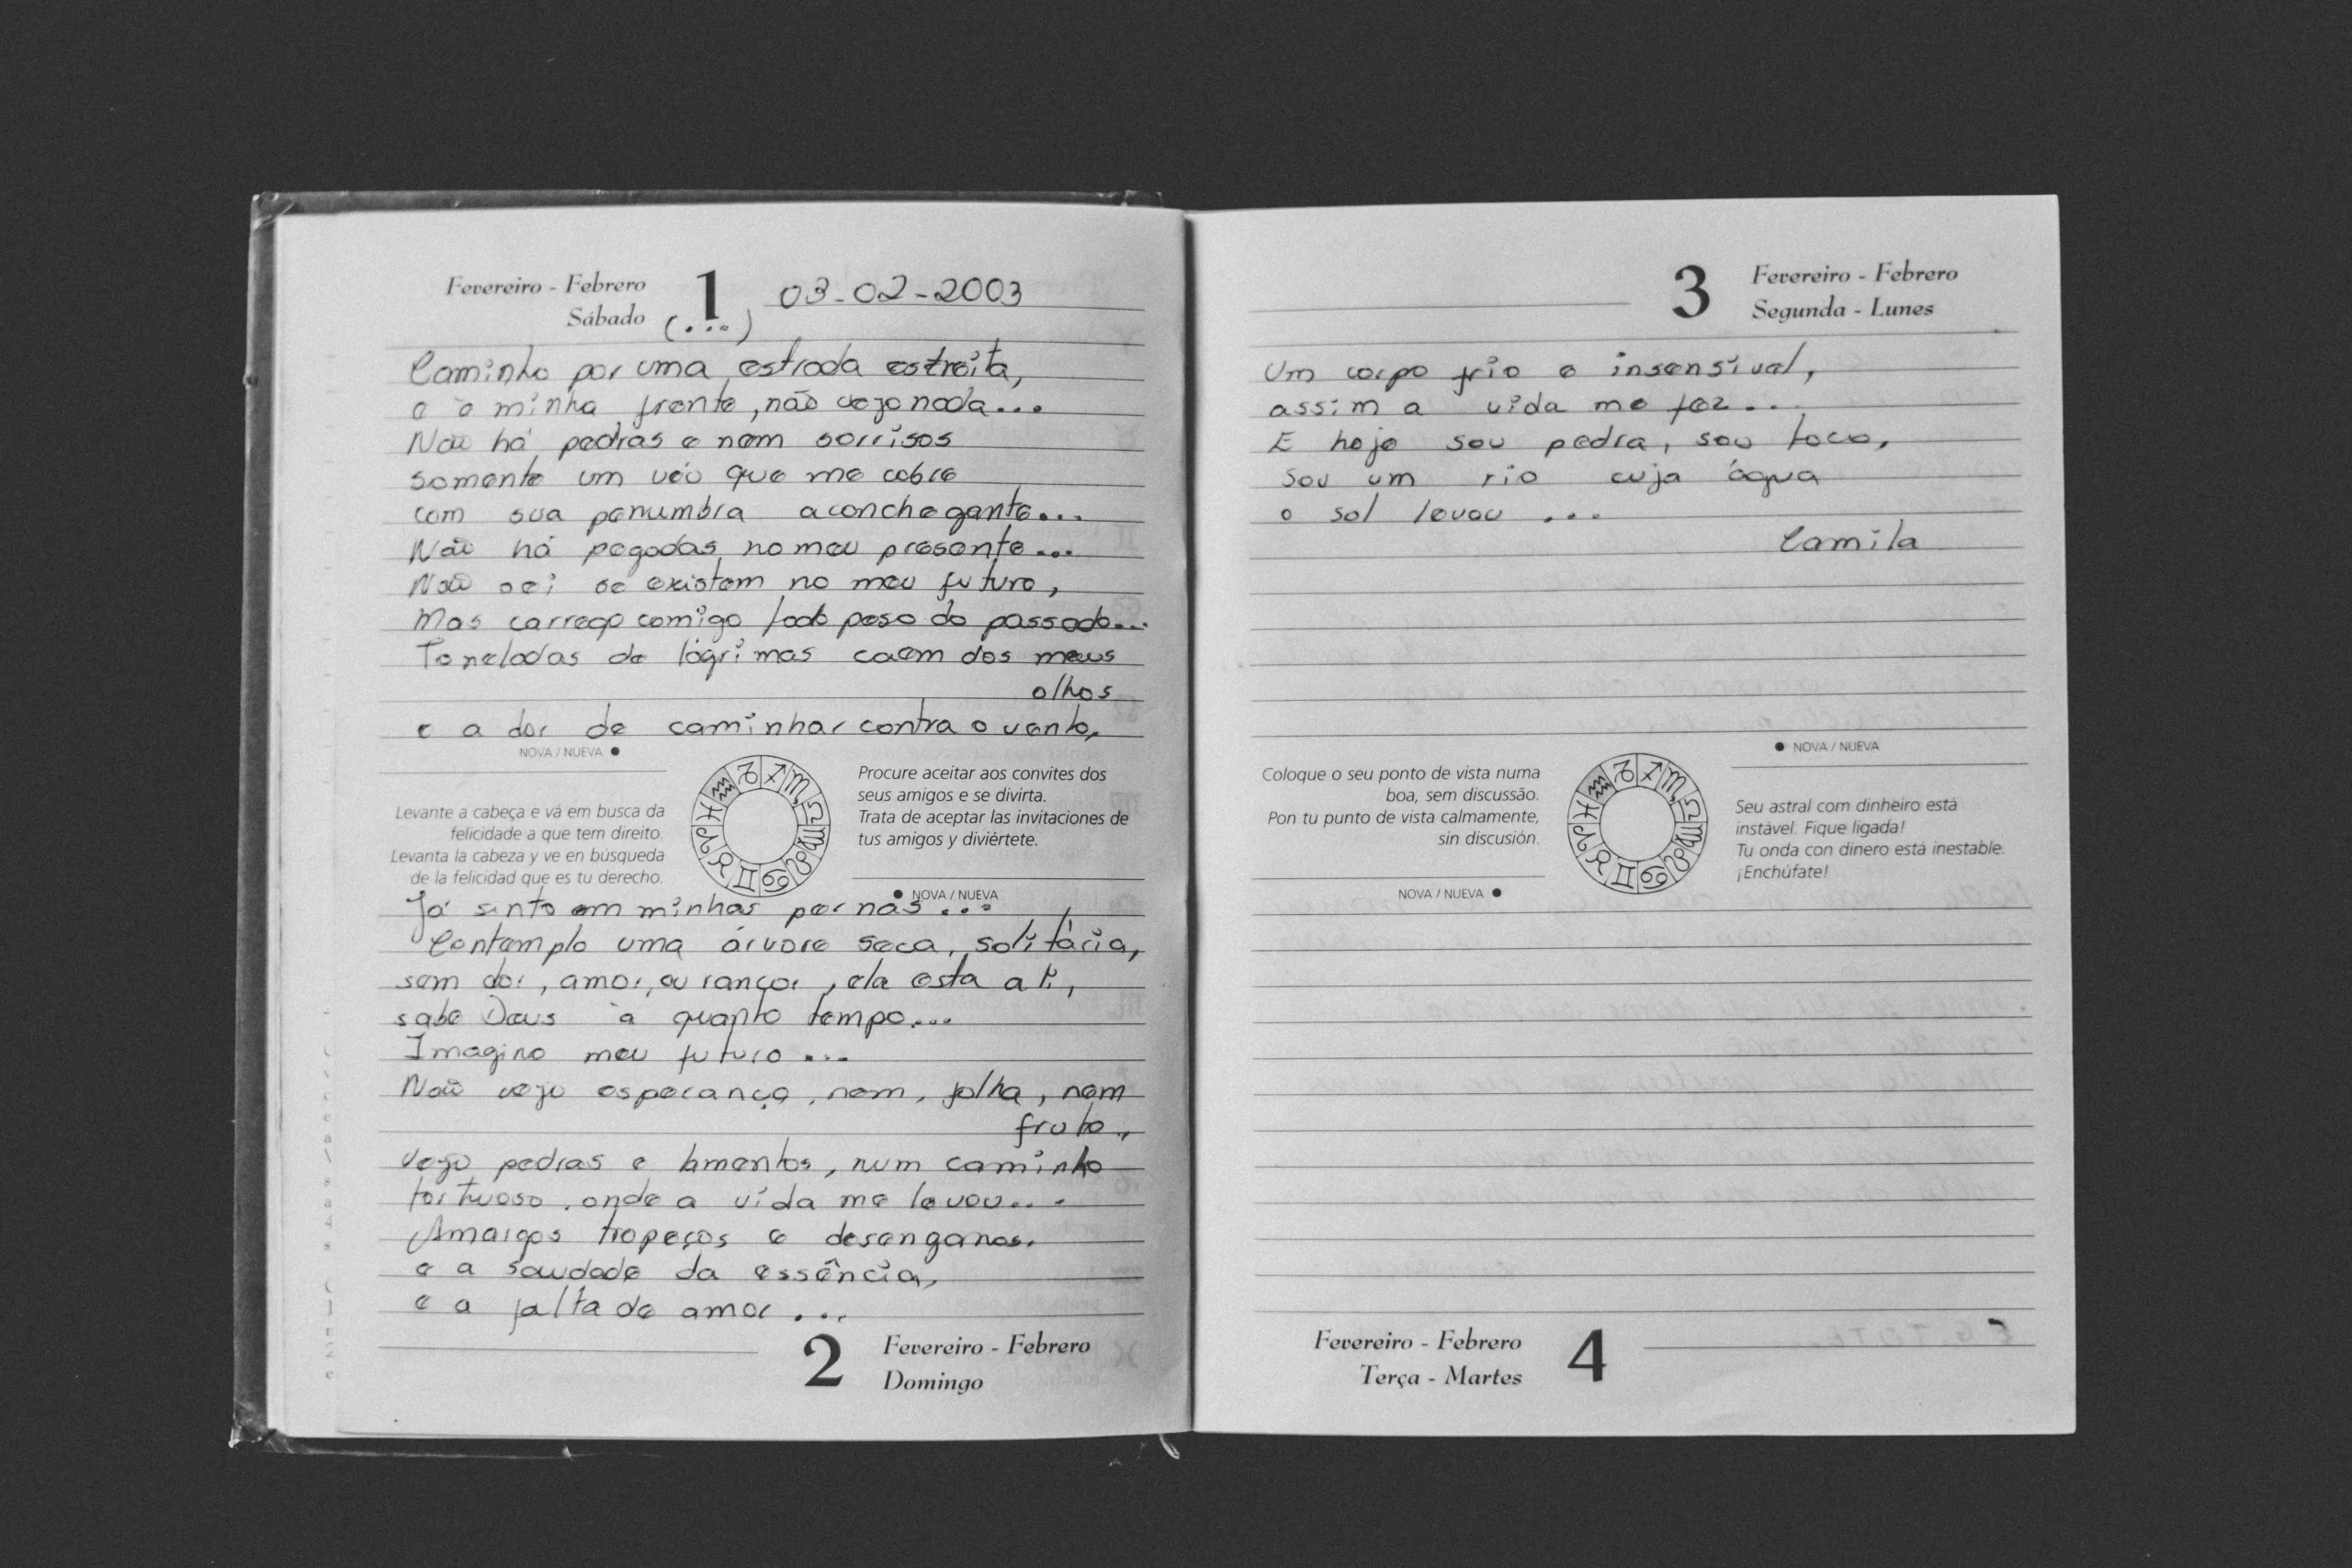 Fevereiro - Febrero
Sábado
1
03-02-2003
(...)
Caminho por uma estrada estreita,
e a minha frente, não vejo nada...
Não há pedras e nem sorrisos
somente um véu que me cobre
com sua penumbra aconchegante...
Não há pegadas no meu presente...
Não sei se existem no meu futuro,
Mas carrego comigo todo peso do passado...
Toneladas de lágrimas caem dos meus
olhos
e a dor de caminhar contra o vento,
NOVA / NUEVA
Levante a cabeça e vá em busca da
felicidade a que tem direito.
Levanta la cabeza y ve en búsqueda
de la felicidad que es tu derecho.
Procure aceitar aos convites dos
seus amigos e se divirta.
Trata de aceptar las invitaciones de
tus amigos y diviértete.
NOVA / NUEVA
Já sinto em minhas pernas...
Contemplo uma árvore seca, solitária,
sem dor, amor, ou rancor, ela esta ali,
sabe Deus à quanto tempo...
Imagino meu futuro...
Não vejo esperança, nem, folha, nem
fruto,
Vejo pedras e lamentos, num caminho
tortuoso, onde a vida me levou...
Amargos tropeços e desenganos.
e a saudade da essência,
e a falta de amor...
2
Fevereiro - Febrero
Domingo
3
Fevereiro - Febrero
Segunda - Lunes
Um corpo frio e insensível,
assim a vida me fez...
E hoje sou pedra, sou toco,
Sou um rio cuja água
o sol levou...
Camila
Coloque o seu ponto de vista numa
boa, sem discussão.
Pon tu punto de vista calmamente,
sin discusión.
NOVA / NUEVA
NOVA / NUEVA
Seu astral com dinheiro está
instável. Fique ligada!
Tu onda con dinero está inestable.
¡Enchúfate!
Fevereiro - Febrero
Terça - Martes
4